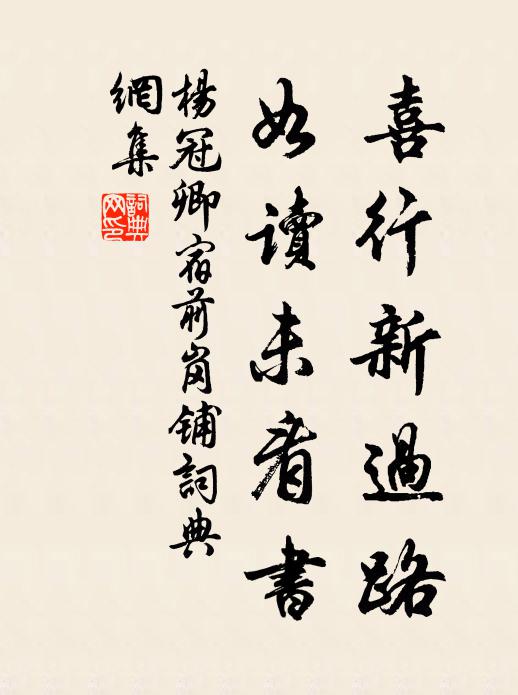 喜行新過路
如讀未看書
楊冠卿宿前岗鋪詞典
網集
詞典
网印